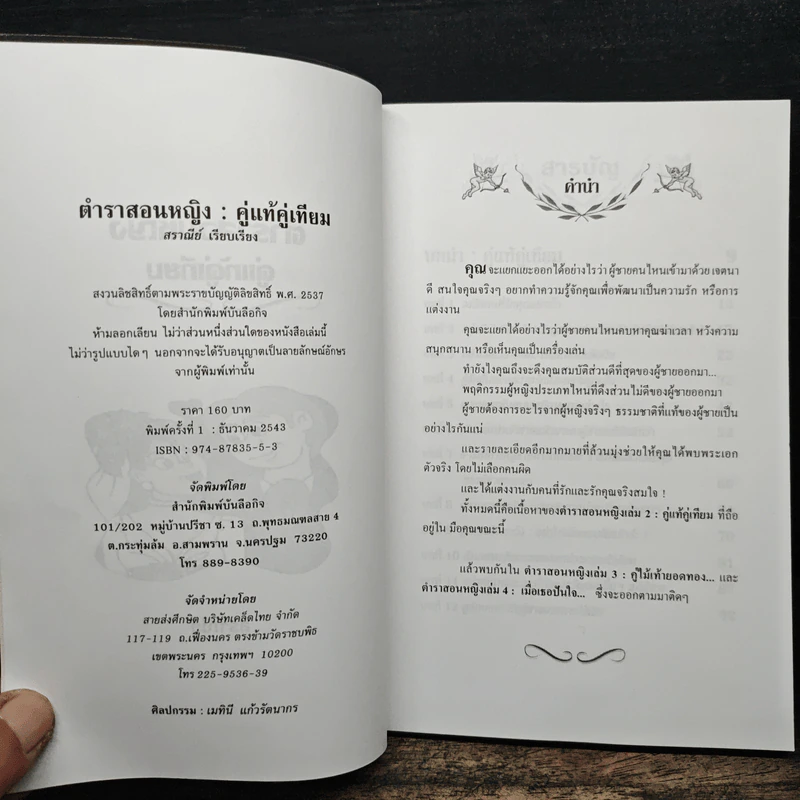 ตำราสอนหญิง : คู่แท้คู่เทียม
สราณีย์ เรียบเรียง
สงวนลิขสิทธิ์ตามพระราชบัญญัติลิขสิทธิ์ พ.ศ. 2537
โดยสำนักพิมพ์บันลือกิจ
ห้ามลอกเลียน ไม่ว่าส่วนหนึ่งส่วนใดของหนังสือเล่มนี้
ไม่ว่ารูปแบบใด ๆ นอกจากจะได้รับอนุญาตเป็นลายลักษณ์อักษร
จากผู้พิมพ์เท่านั้น
ราคา 160 บาท
พิมพ์ครั้งที่ 1 : ธันวาคม 2543
ISBN : 974-87835-5-3
จัดพิมพ์โดย
สำนักพิมพ์บันลือกิจ
101/202 หมู่บ้านปรีชา ซ. 13 ถ.พุทธมณฑลสาย 4
ต.กระทุ่มล้ม อ.สามพราน จ.นครปฐม 73220
โทร 889-8390
จัดจำหน่ายโดย
สายส่งศึกษิต บริษัทเคล็ดไทย จำกัด
117-119 ถ.เฟื่องนคร ตรงข้ามวัดราชบพิธ
เขตพระนคร กรุงเทพฯ 10200
โทร 225-9536-39
ศิลปกรรม : เมทินี แก้วรัตนากร
คำนำ
คุณจะแยกแยะออกได้อย่างไรว่า ผู้ชายคนไหนเข้ามาด้วย เจตนา
ดี สนใจคุณจริงๆ อยากทำความรู้จักคุณเพื่อพัฒนาเป็นความรัก หรือการ
แต่งงาน
คุณจะแยกได้อย่างไรว่า ผู้ชายคนไหนคบหาคุณฆ่าเวลา หวังความ
สนุกสนาน หรือเห็นคุณเป็นเครื่องเล่น
ทำยังไงคุณถึงจะดึงคุณสมบัติส่วนดีที่สุดของผู้ชายออกมา...
พฤติกรรมผู้หญิงประเภทไหนที่ดึงส่วนไม่ดีของผู้ชายออกมา
ผู้ชายต้องการอะไรจากผู้หญิงจริงๆ ธรรมชาติที่แท้ของผู้ชายเป็น
อย่างไรกันแน่
และรายละเอียดอีกมากมายที่ล้วนมุ่งช่วยให้คุณได้พบพระเอก
ตัวจริง โดยไม่เลือกคนผิด
และได้แต่งงานกับคนที่รักและรักคุณจริงสมใจ !
ทั้งหมดนี้คือเนื้อหาของตำราสอนหญิงเล่ม 2 : คู่แท้คู่เทียม ที่ถือ
อยู่ใน มือคุณขณะนี้
แล้วพบกันใน ตำราสอนหญิงเล่ม 3 : คู่ไม้เท้ายอดทอง... และ
ตำราสอนหญิงเล่ม 4 : เมื่อเธอปันใจ... ซึ่งจะออกตามมาติดๆ